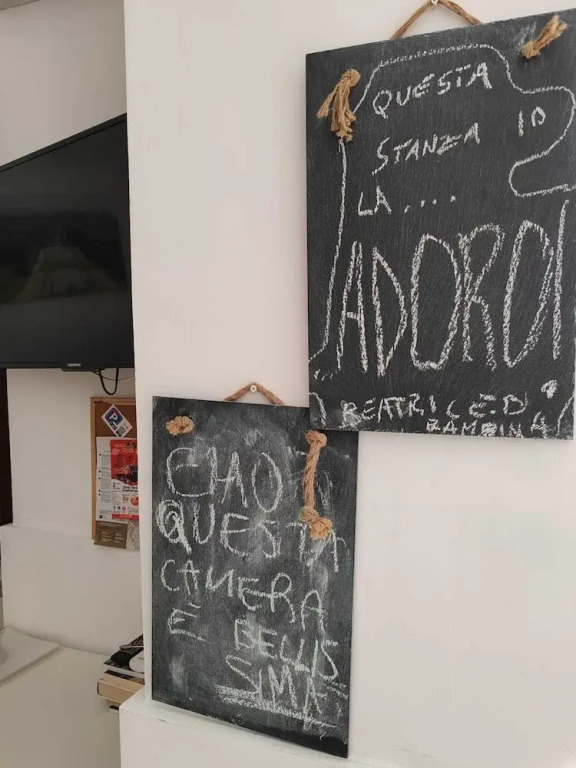 QUESTA
STANZA IO
LA....
ADORO!
BEATRICE.D'
BAMBINA
CIAO
QUESTA
CAMERA
È BELLIS
SIMA